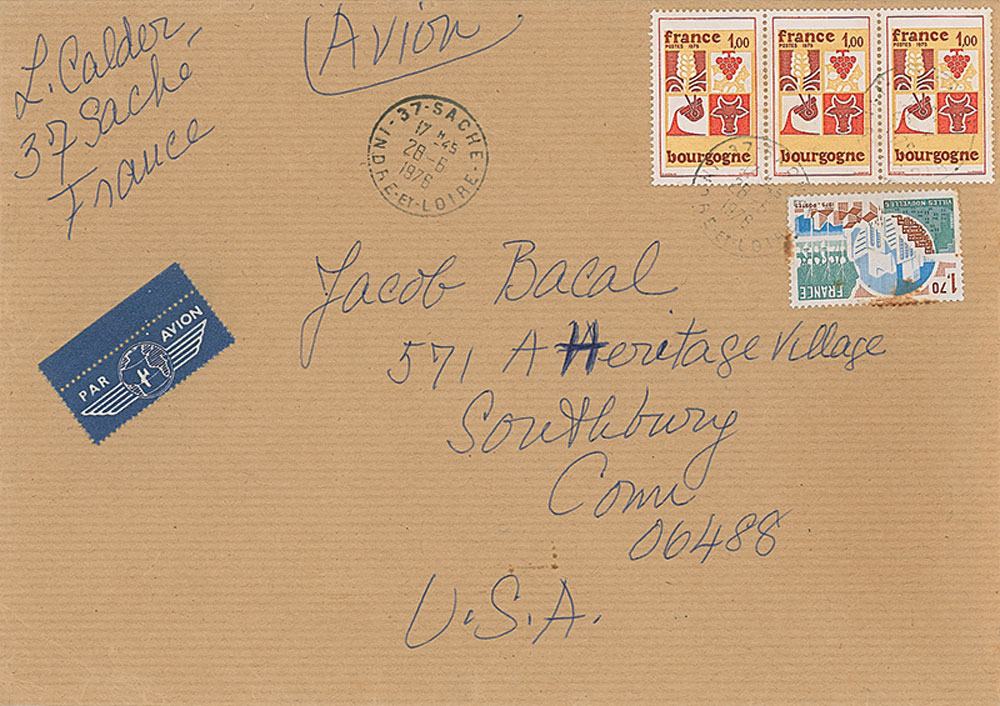 L. Calder
37 Sache
France
(Avion)
37-SACHE
17 H 45
28-6
1976
INDRE-ET-LOIRE
france 1,00
POSTES 1975
bourgogne
france 1,00
POSTES 1975
bourgogne
france 1,00
POSTES 1975
bourgogne
VILLES NOUVELLES
1975 POSTES
FRANCE
1,70
PAR AVION
Jacob Bacal
571 A Heritage Village
Southbury
Conn
06488
U.S.A.